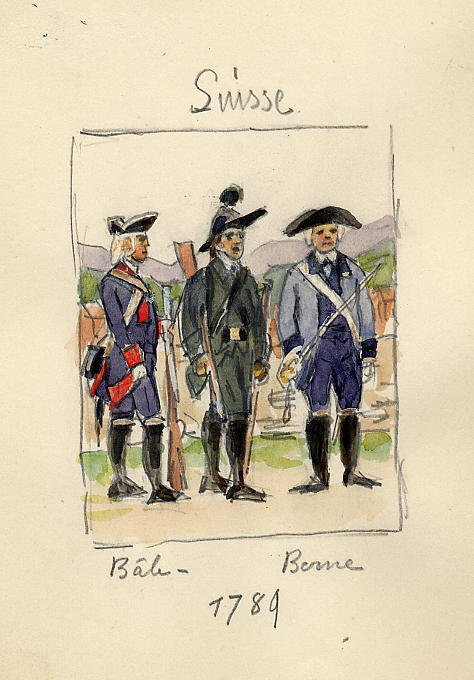 Suisse
Bâle - Berne
1789